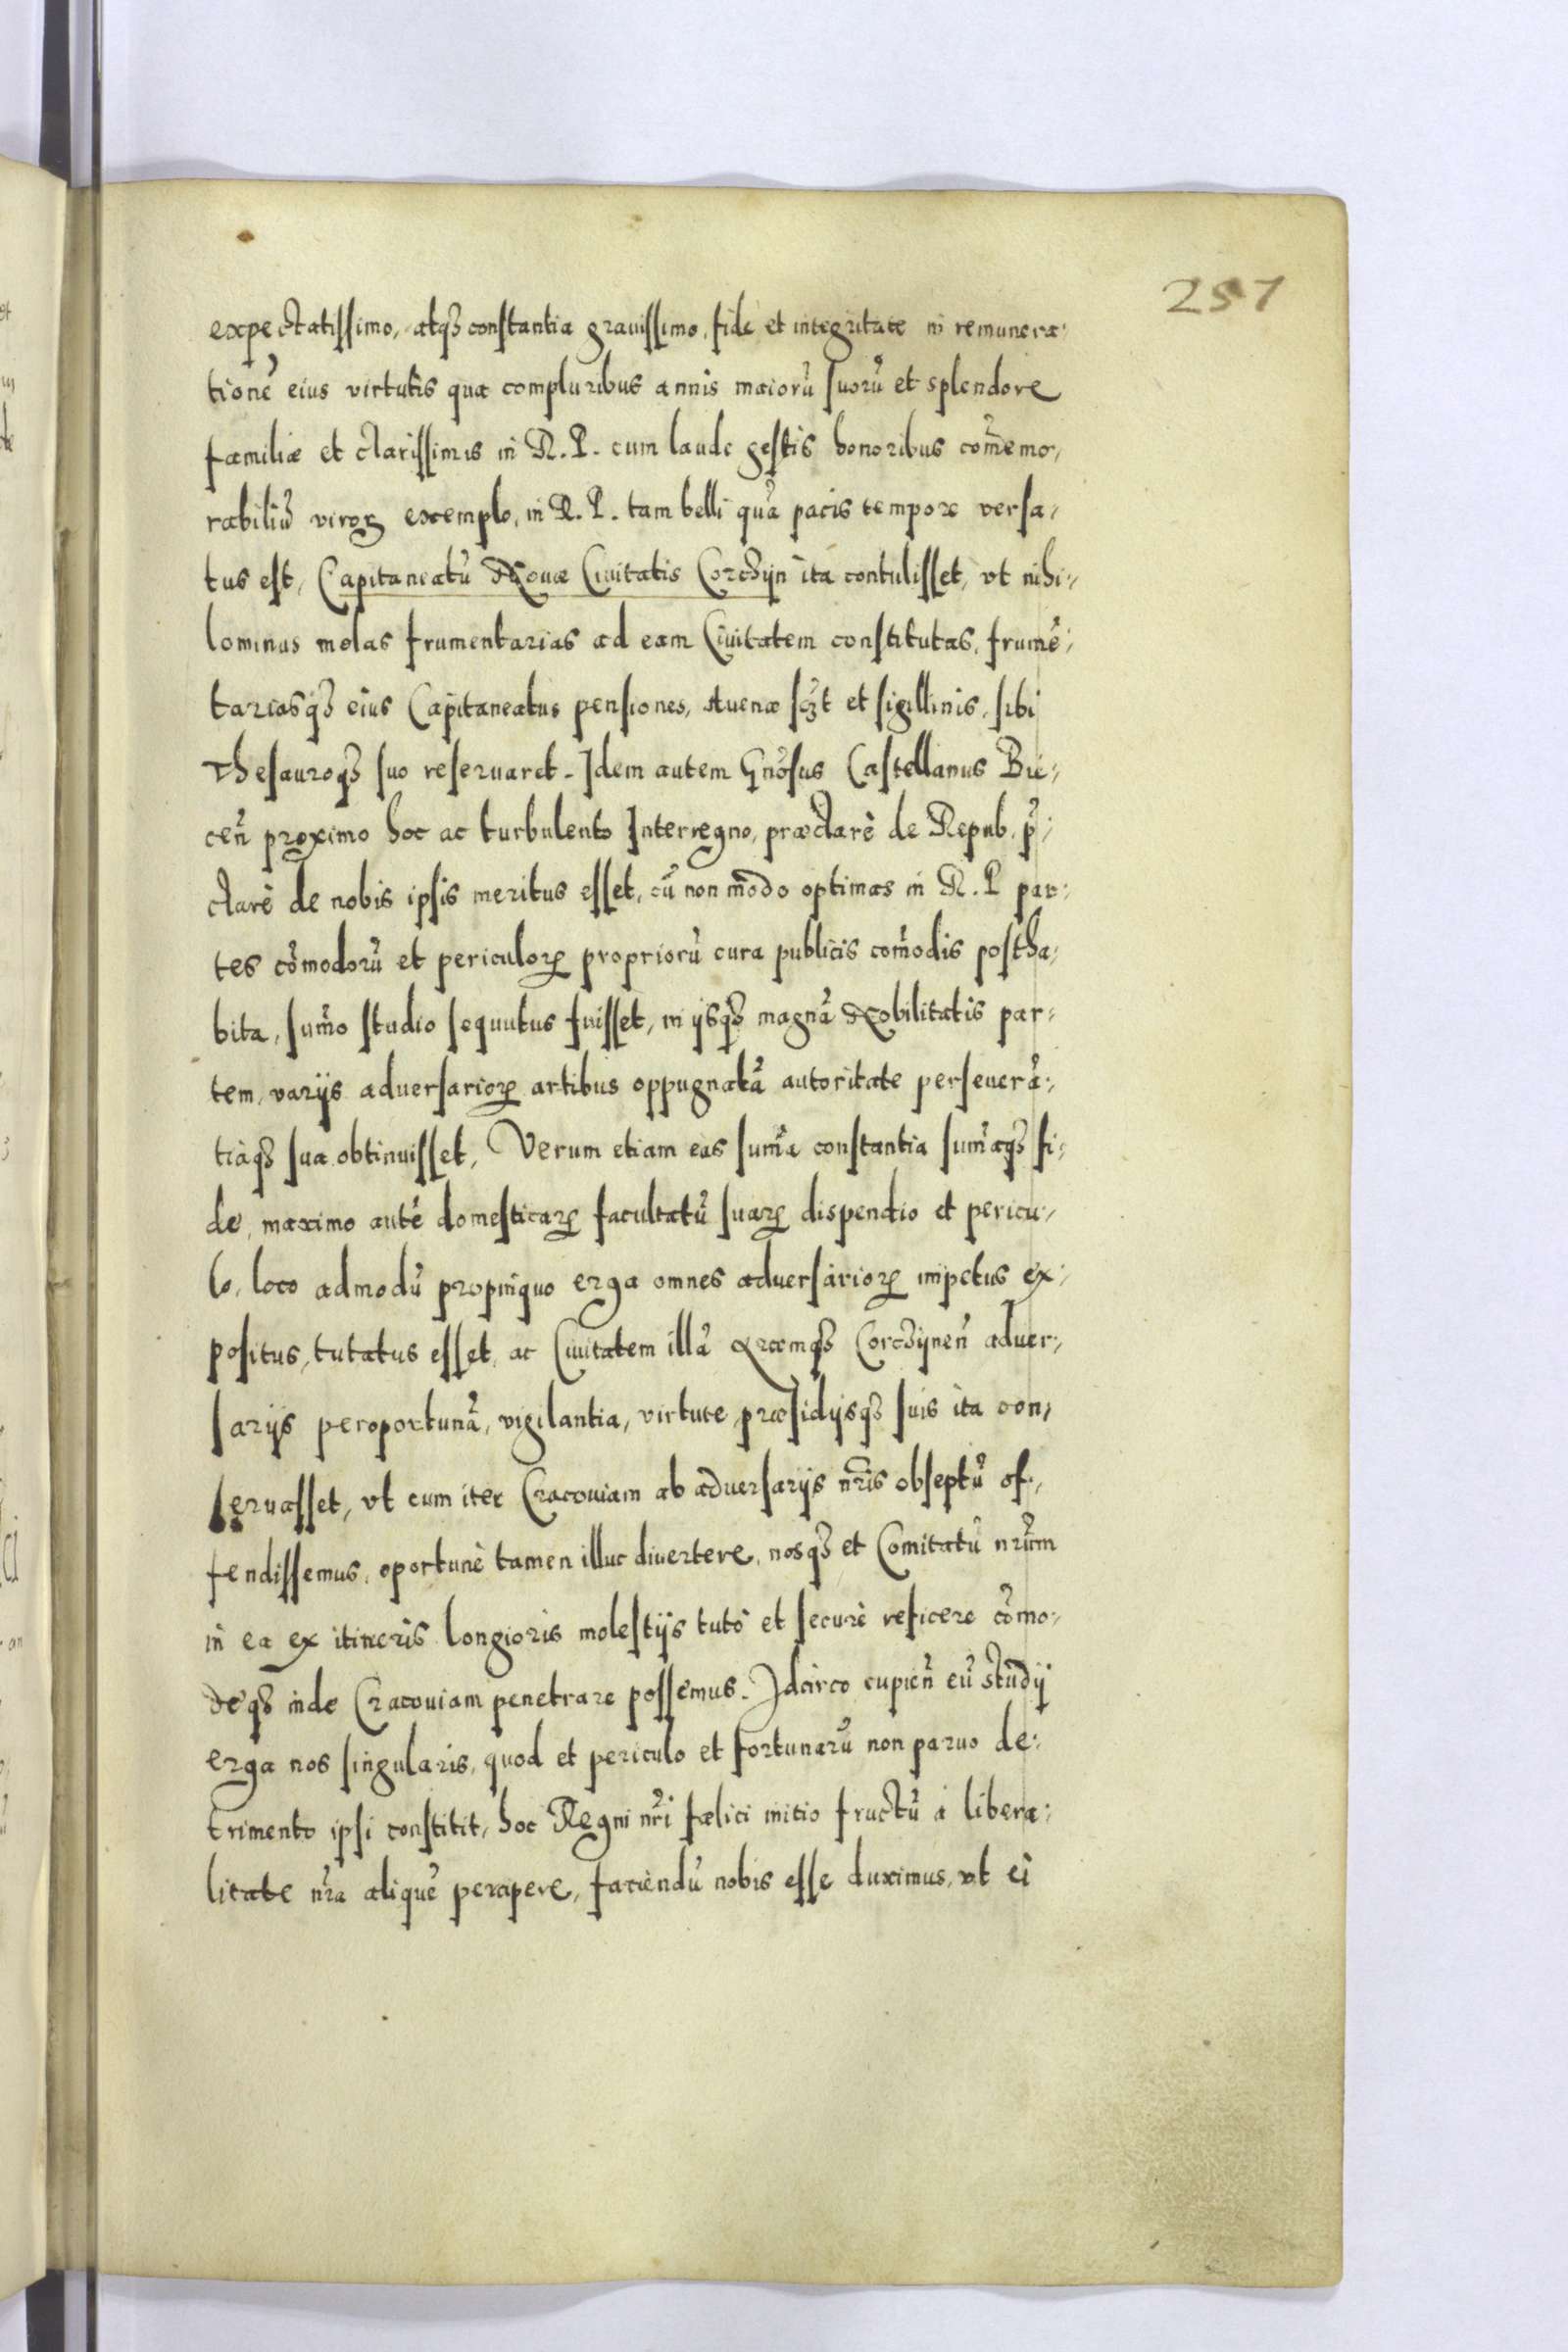 257
expectatissimo, atqȝ constantia grauissimo, fide et integritate in remunera-
tionẽ eius virtutis qua compluribus annis maiorũ suorũ et splendore
familiæ et clarissimis in R. P. cum laude gestis honoribus com̃emo-
rabiliũ virorꝝ exemplo, in R. P. tam belli quã pacis tempore versa-
tus est, Capitaneatũ Nouæ Ciuitatis Corchijn ita contulisset, vt nihi-
lominus molas frumentarias ad eam Ciuitatem constitutas, frumẽ-
tariasqȝ eius Capitaneatus pensiones, Auenæ sczt et sigillinis, sibi
Thesauroqȝ suo reseruaret. Idem autem Gnõsus Castellanus Bie-
ceñ proximo hoc ac turbulento Interregno, præclarè de Repub. p̃-
clarè de nobis ipsis meritus esset, cũ non modo optimas in R. P par-
tes cõmodorũ et periculorꝝ propriorũ cura publicis com̃odis postha-
bita, sum̃o studio sequutus fuisset, in ijsqȝ magnã Nobilitatis par-
tem, varijs adversariorꝝ artibus oppugnatã autoritate perseuerã-
tiaqȝ sua obtinuisset, Verum etiam eas sum̃a constantia sum̃aqȝ fi-
de, maximo autẽ domesticarꝝ facultatũ suarꝝ dispendio et pericu-
lo, loco admodũ propinquo erga omnes adversariorꝝ impetus ex-
positus, tutatus esset, ac Ciuitatem illã Arcemqȝ Corchijneñ adver-
sarijs peroportunã, vigilantia, virtute præsidijsqȝ suis ita con-
seruasset, vt cum iter Cracouiam ab adversarijs nr̃is obseptũ of-
fendissemus, oportunè tamen illuc diuertere, nosqȝ et Comitatũ nrũm
in ea ex itineris longioris molestijs tutò et securè reficere cõmo-
deqȝ inde Cracouiam penetrare possemus. Idcirco cupieñ eũ studij
erga nos singularis, quod et periculo et fortunarũ non paruo de-
trimento ipsi constitit, hoc Regni nr̃i fælici initio fructũ à libera-
litate nr̃a aliquẽ percipere, faciendũ nobis esse duximus, vt ei